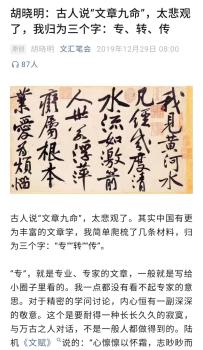 胡晓明：古人说“文章九命”，太悲观
了，我归为三个字：专、转、传
原创 胡晓明 文汇笔会 2019年12月29日 08:00
87人
我见黄河水
凡经几度清
水流如激箭
人世若浮萍
痴属根本
业爱为烦恼
古人说“文章九命”，太悲观了。其实中国有更
为丰富的文章学，我简单爬梳了几条材料，归
为三个字：“专”“转”“传”。
“专”，就是专业、专家的文章，一般就是写给
小圈子里看的。我一点都没有看不起专家的意
思。对于精密的学问讨论，内心恒有一副深深
的敬意。这个是要耐得一种长长久久的寂寞，
与万古之人对话，不是一般人都做得到的。陆
机《文赋》说的：“心懔懔以怀霜，志眇眇而